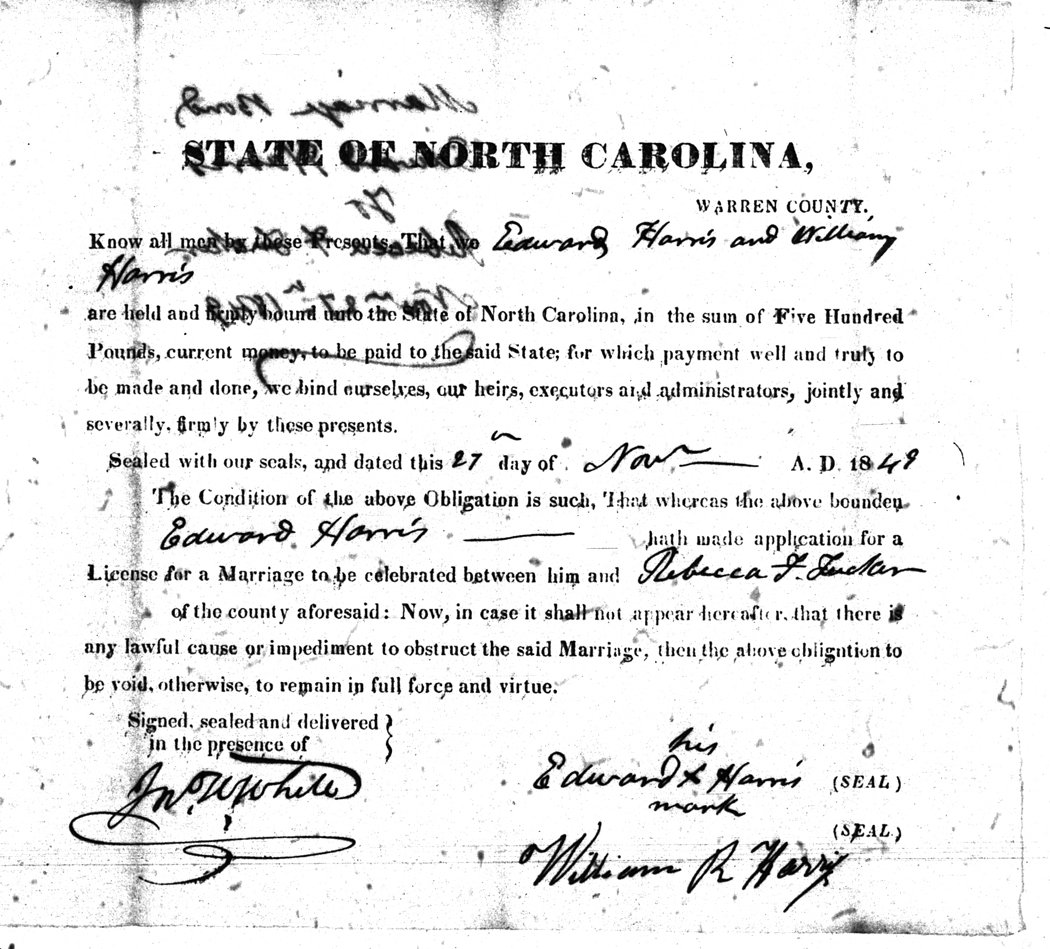 Marriage Bond
STATE OF NORTH CAROLINA,
To
WARREN COUNTY.
Know all men by these Presents, That we Edward Harris and William
Harris
are held and firmly bound unto the State of North Carolina, in the sum of Five Hundred
Pounds, current money, to be paid to the said State; for which payment well and truly to
be made and done, we bind ourselves, our heirs, executors and administrators, jointly and
severally, firmly by these presents.
Sealed with our seals, and dated this 27 day of Novr A. D. 1849
The Condition of the above Obligation is such, That whereas the above bounden
Edward Harris hath made application for a
License for a Marriage to be celebrated between him and Rebecca F. Tucker
of the county aforesaid: Now, in case it shall not appear hereafter, that there is
any lawful cause or impediment to obstruct the said Marriage, then the above obligation to
be void, otherwise, to remain in full force and virtue.
Signed, sealed and delivered
in the presence of
his
Edward X Harris (SEAL)
mark
Jno W White
(SEAL)
William R Harris